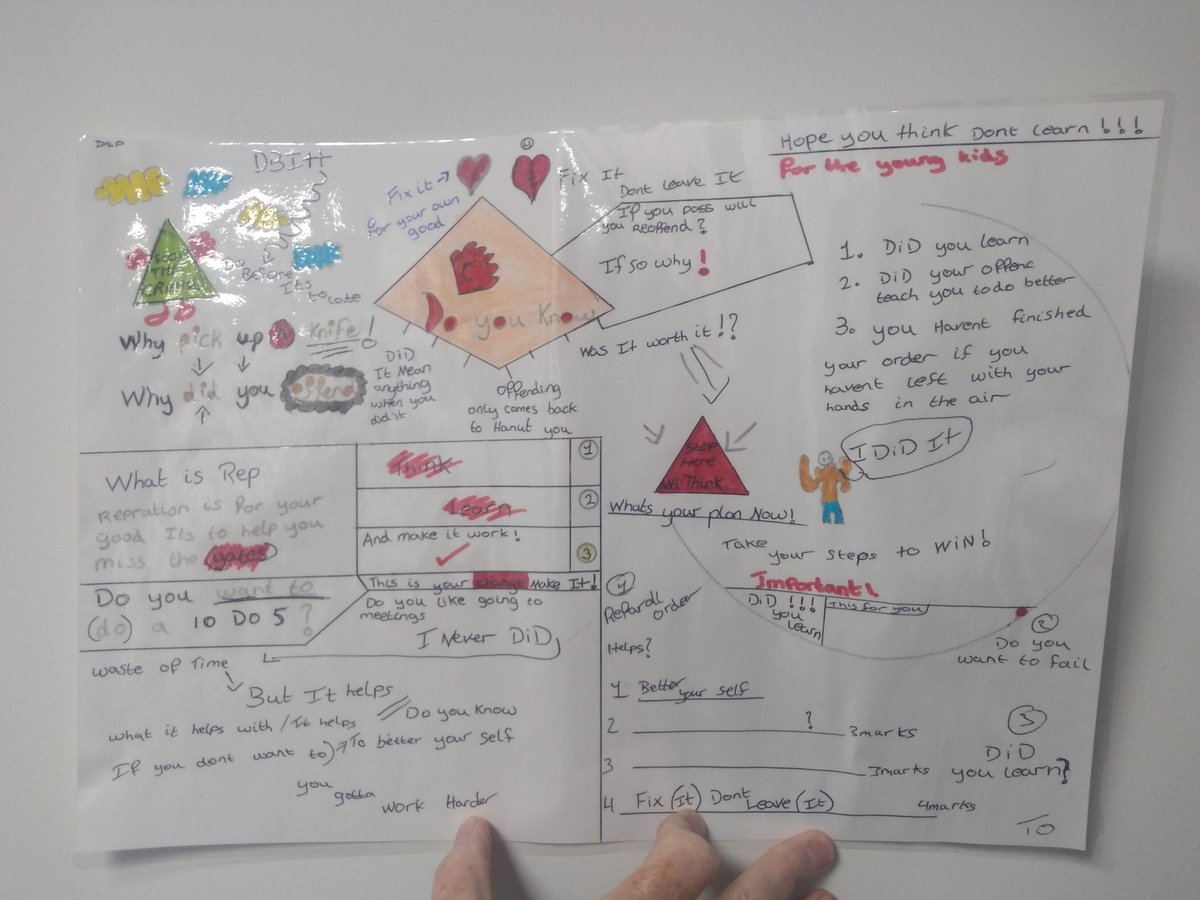 DSP
D3IH
STOP
THE
CRIME
Do
Before
Its
to late
Why pick up a knife!
Why did you offend
Fix it
for your own
good
4
Fix It
Do you Know
DiD
It Mean
anything
when you
did it
offending
only comes back
to Hanut you
Dont leave It
If you Doss will
you Reoffend?
If so why!
Was It worth it!?
Stop
Here
And Think
Whats your plan Now!
Hope you think Dont Learn!!!
for the young kids
1. DiD you learn
2. DiD your offenc
teach you to do better
3. you Havent finished
your order if you
havent left with your
hands in the air
I DiD It
Take your steps to WiN!
What is Rep
Repration is for your
good Its to help you
miss the gates
Think
1
Learn
2
And make it work!
3
This is your change Make It!
Do you want to
(do) a 10 Do 5?
Do you like going to
meetings
I Never DiD
waste of Time
But It helps
what it helps with / It helps // Do you Know
If you dont want to) To better your self
you
gotta
work Harder
Important!
DiD !!!
you
learn
This for you
1
Reparall
order
Helps?
2
Do you
want to fail
1 Better your self
2 ? 3marks
3 3marks
3
DiD
you learn?
4 Fix (It) Dont Leave (It) 4marks
TO